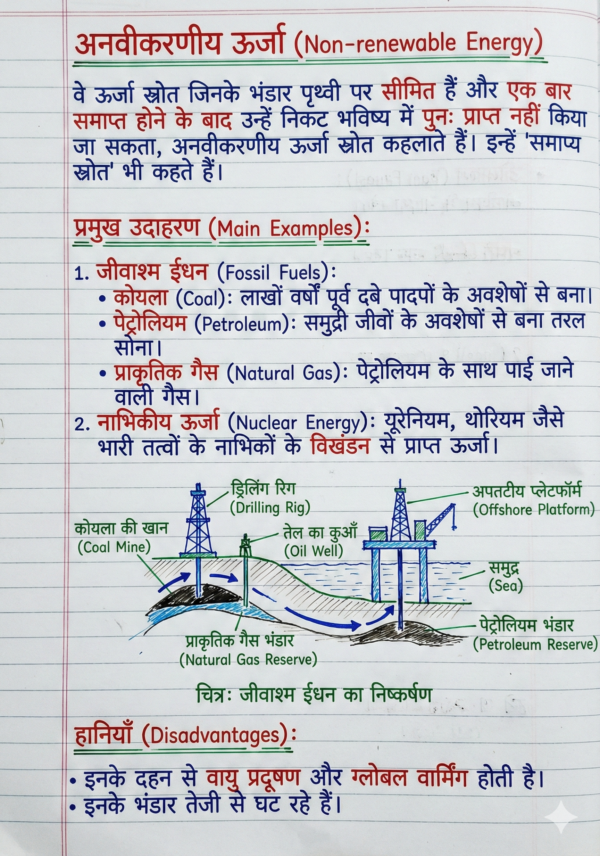 अनवीकरणीय ऊर्जा (Non-renewable Energy)
वे ऊर्जा स्रोत जिनके भंडार पृथ्वी पर सीमित हैं और एक बार
समाप्त होने के बाद उन्हें निकट भविष्य में पुनः प्राप्त नहीं किया
जा सकता, अनवीकरणीय ऊर्जा स्रोत कहलाते हैं। इन्हें 'समाप्य
स्रोत' भी कहते हैं।
प्रमुख उदाहरण (Main Examples):
1. जीवाश्म ईधन (Fossil Fuels):
• कोयला (Coal): लाखों वर्षों पूर्व दबे पादपों के अवशेषों से बना।
• पेट्रोलियम (Petroleum): समुद्री जीवों के अवशेषों से बना तरल
सोना।
• प्राकृतिक गैस (Natural Gas): पेट्रोलियम के साथ पाई जाने
वाली गैस।
2. नाभिकीय ऊर्जा (Nuclear Energy): यूरेनियम, थोरियम जैसे
भारी तत्वों के नाभिकों के विखंडन से प्राप्त ऊर्जा।
ड्रिलिंग रिग
(Drilling Rig)
अपतटीय प्लेटफॉर्म
(Offshore Platform)
कोयला की खान
(Coal Mine)
तेल का कुआँ
(Oil Well)
समुद्र
(Sea)
प्राकृतिक गैस भंडार
(Natural Gas Reserve)
पेट्रोलियम भंडार
(Petroleum Reserve)
चित्र: जीवाश्म ईधन का निष्कर्षण
हानियाँ (Disadvantages):
• इनके दहन से वायु प्रदूषण और ग्लोबल वार्मिंग होती है।
• इनके भंडार तेजी से घट रहे हैं।